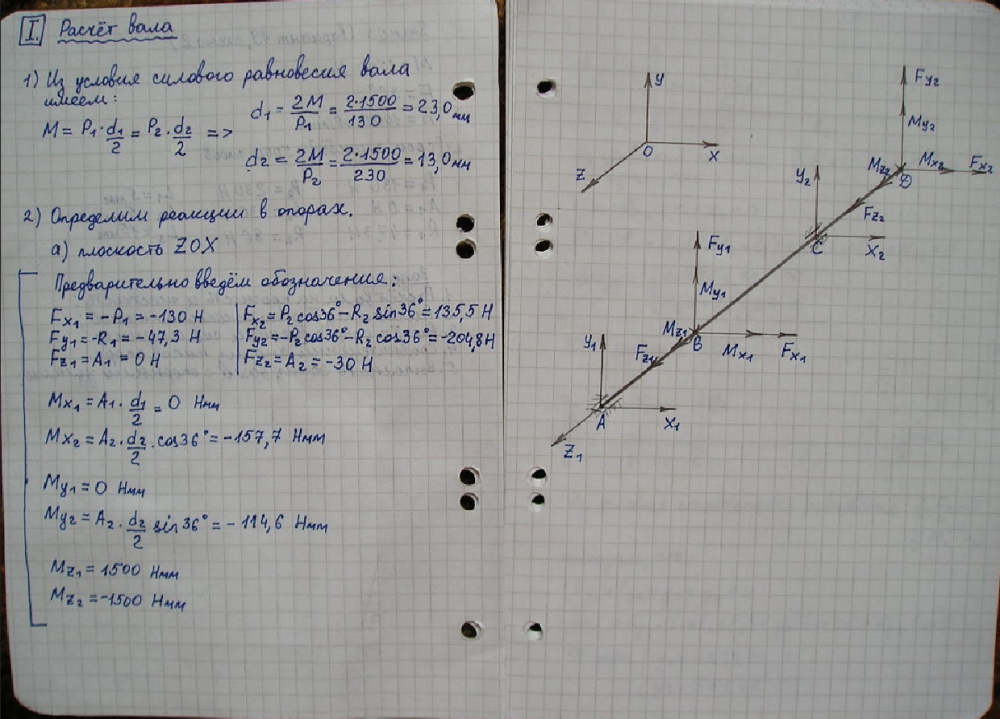 I. Расчёт вала
1) Из условия силового равновесия вала
имеем:
M = P1·d1/2 = P2·d2/2 =>
d1 = 2M/P1 = 2·1500/130 = 23,0 мм
d2 = 2M/P2 = 2·1500/230 = 13,0 мм
2) Определим реакции в опорах.
а) плоскость ZOX
Предварительно введём обозначения:
Fx1 = -P1 = -130 Н
Fy1 = -R1 = -47,3 Н
Fz1 = A1 = 0 Н
Fx2 = P2 cos36° - R2 sin36° = 135,5 Н
Fy2 = -P2 cos36° - R2 cos36° = -204,8 Н
Fz2 = A2 = -30 Н
Mx1 = A1·d1/2 = 0 Нмм
Mx2 = A2·d2/2·cos36° = -157,7 Нмм
My1 = 0 Нмм
My2 = A2·d2/2 sin36° = -114,6 Нмм
Mz1 = 1500 Нмм
Mz2 = -1500 Нмм
y
O
x
z
Fy2
My2
Mz2
Mx2
Fx2
D
y2
Fz2
C
x2
Fy1
My1
Mz1
B
Fz1
Mx1
Fx1
y1
A
x1
z1